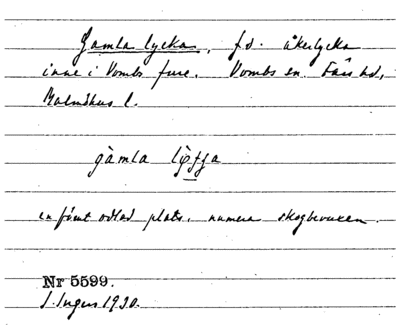 Gamla lycka, f.d. åkerlycka
inne i Vombs fure. Vombs sn. Färs hd,
Malmöhus l.
gàmla
en förut odlad plats, numera skogbevuxen.
Nr 5599.
S. Ingers 1930.